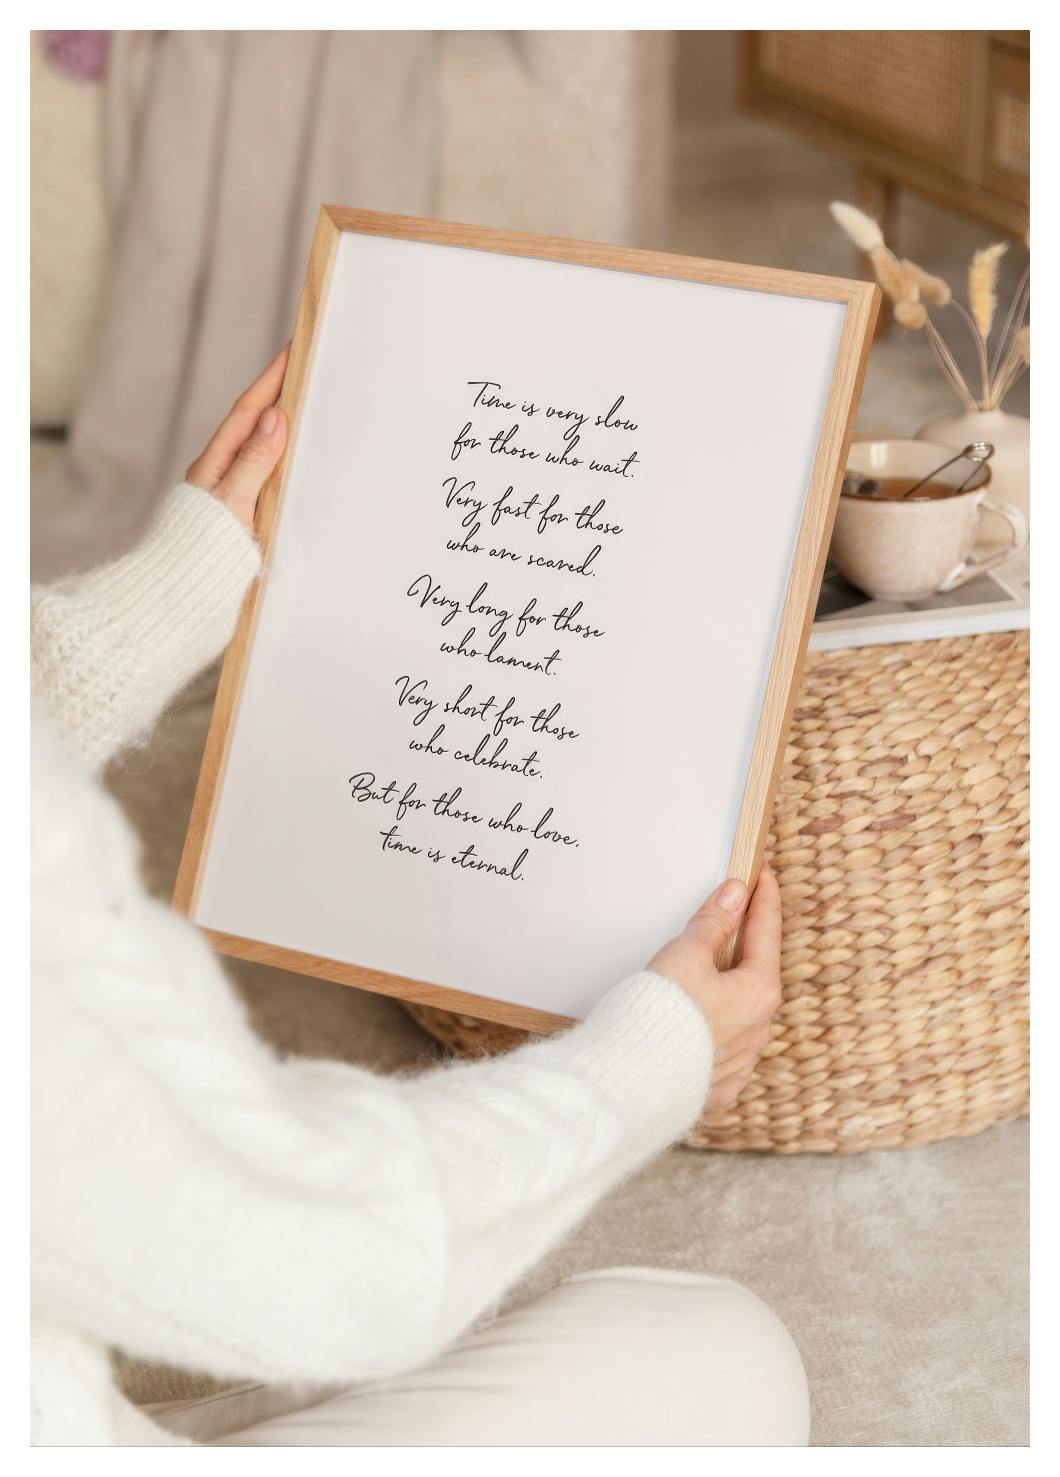 Time is very slow
for those who wait.
Very fast for those
who are scared.
Very long for those
who lament.
Very short for those
who celebrate.
But for those who love,
time is eternal.